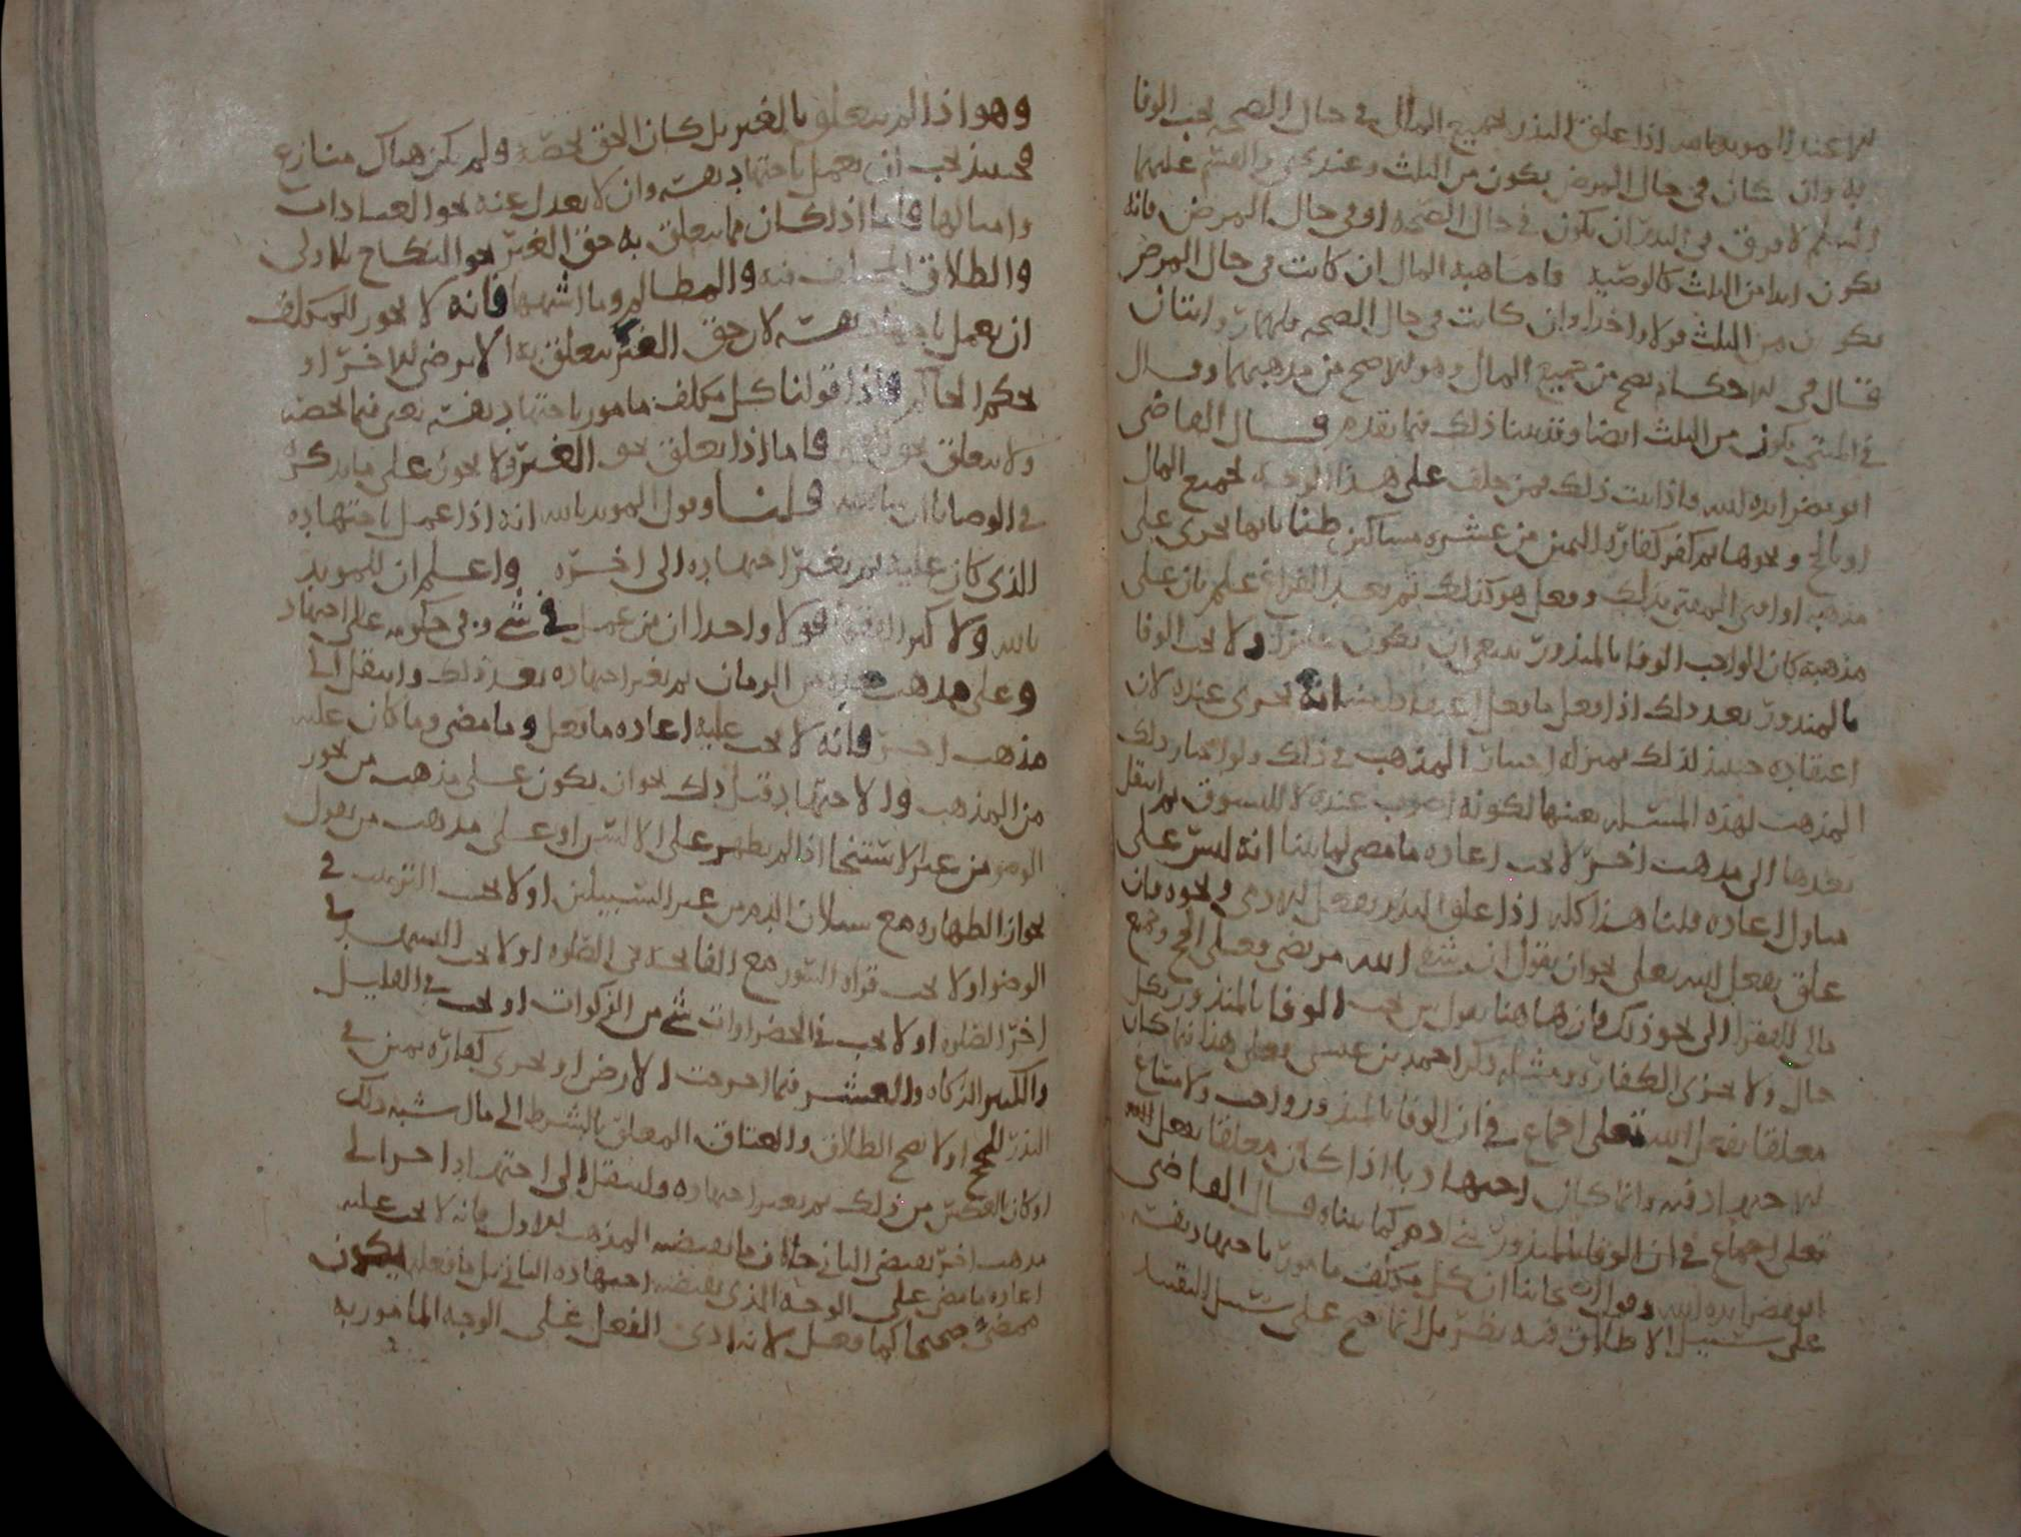 لان عند المويد بالله اذا علق النذر بجميع المال في حال الصحه يجب الوفا
به وان كان في حال المرض يكون من الثلث وعند يحيى والقسم عليهما
السلم لا فرق في النذر ان يكون في حال الصحه او في حال المرض فانه
يكون ابدا من الثلث كالوصيه فاما هبه المال ان كانت في حال المرض
يكون من الثلث قولا واحدا وان كانت في حال الصحه فلهما روايتان
فقال في الاحكام يصح من جميع المال وهو الاصح من مذهبهما وقال
في المنتخب يكون من الثلث ايضا وقد بينا ذلك فيما تقدم وقال القاضي
ابو مضر ايده الله فاذا ثبت ذلك فمن حلف على هذا الوجه بجميع المال
او بالحج ونحوها ثم كفر كفارة اليمين من عشره مساكين ظنا بانها تجزى على
مذهبه او افتى المفتي بذلك وفعل هو كذلك ثم بعد الفراغ علم بان على
مذهبه كان الواجب الوفا بالمنذور ينبغي ان يكون ولا يجب الوفا
بالمنذور بعد ذلك اذا فعل ما فعل انه يجزى عنده لان
اعتقاده حينيذ لذلك بمنزله اختيار المذهب في ذلك ولو اختار ذلك
المذهب لهذه المسله بعينها لكونه اصوب عنده لا للتسوق ثم انتقل
بعدها الى مذهب اخر لا يجب اعاده ما مضى لما بينا انه ليس على
اعاده قلنا هذا كله اذا علق النذر بفعل الادمي ونحوه فان
علق بفعل الله تعلى نحو ان يقول ان شفى الله مريضي فعلي الحج وجميع
مالي للفقرا الى نحو ذلك فان هاهنا يقول من يجب الوفا بالمنذور بكل
حال ولا تجزى الكفارة ومثله ذكر احمد بن عيسى فعلى هذا فيما كان
معلقا بفعل الله تعلى اجماع في ان الوفا بالمنذور واجب ولا مساغ
للاجتهاد فيه وانما كان اجتهاديا اذا كان معلقا بفعل
تعلى اجماع في ان الوفا بالمنذور كما بيناه وقال القاضي
ابو مضر ايده الله وقول اصحابنا ان كل مكلف مامور باجتهاد نفسه
على سبيل الاطلاق فيه نظر بل انما يصح على سبيل التقييد
وهو اذا لم يتعلق بالغير بل كان الحق يخصه ولم يكن هناك منازع
فحينيذ يجب ان يعمل باجتهاد نفسه وان لا يعدل عنه نحو العبادات
وامثالها فاما اذا كان مما يتعلق به حق الغير نحو النكاح بلا ولي
والطلاق المختلف فيه والمظالم وما اشبهها فانه لا يجوز للمكلف
ان يعمل باجتهاد نفسه لان حق الغير يتعلق به الا برضى الاخر او
بحكم الحاكم فاذا قولنا كل مكلف مامور باجتهاد نفسه يعني فيما يخصه
ولا يتعلق بحق فاما اذا تعلق بحق الغير فلا يجوز على ما يذكره
في الوصايا ان شا الله قلنا وقول المويد بالله انه اذا عمل باجتهاده
الذي كان عليه ثم تغير اجتهاده الى اخره واعلم ان للمويد
بالله ولاكثر الفقها قولا واحدا ان من عمل في شي وفي حكومه على اجتهاد
وعلى مذهب الزمان ثم تغير اجتهاده بعد ذلك وانتقل الى
مذهب اخر فانه لا يجب عليه اعاده ما فعل وما مضى وما كان عليه
من المذهب والاجتهاد قبل ذلك نحو ان يكون على مذهب من يجوز
الوضو من غير الاستنجا اذا لم يظهر على الاليتين او على مذهب من يقول
بجواز الطهاره مع سيلان الدم من غير السبيلين او لا يجب الترتيب في
الوضو او لا يجب قراه السوره مع الفاتحه في الصلوه او لا يجب التسليم في
اخر الصلوه او لا يجب في الخضراوات شي من الزكوات او يجب في القليل
والكثير الزكاه والعشر فيما اخرجت الارض او تجزى كفارة يمين في
النذر للحج او لا يصح الطلاق والعتاق المعلق بالشرط الى ما شبه ذلك
او كان العكس من ذلك ثم تغير اجتهاده وانتقل الى اجتهاد اخر الى
مذهب اخر يقتضي الثاني خلاف ما يقتضيه المذهب الاول فانه لا يجب عليه
اعاده ما مضى على الوجه الذي يقتضيه اجتهاده الثاني بل ما فعله يكون
ممضى صحيحا كما فعل لانه ادى الفعل على الوجه المامور به